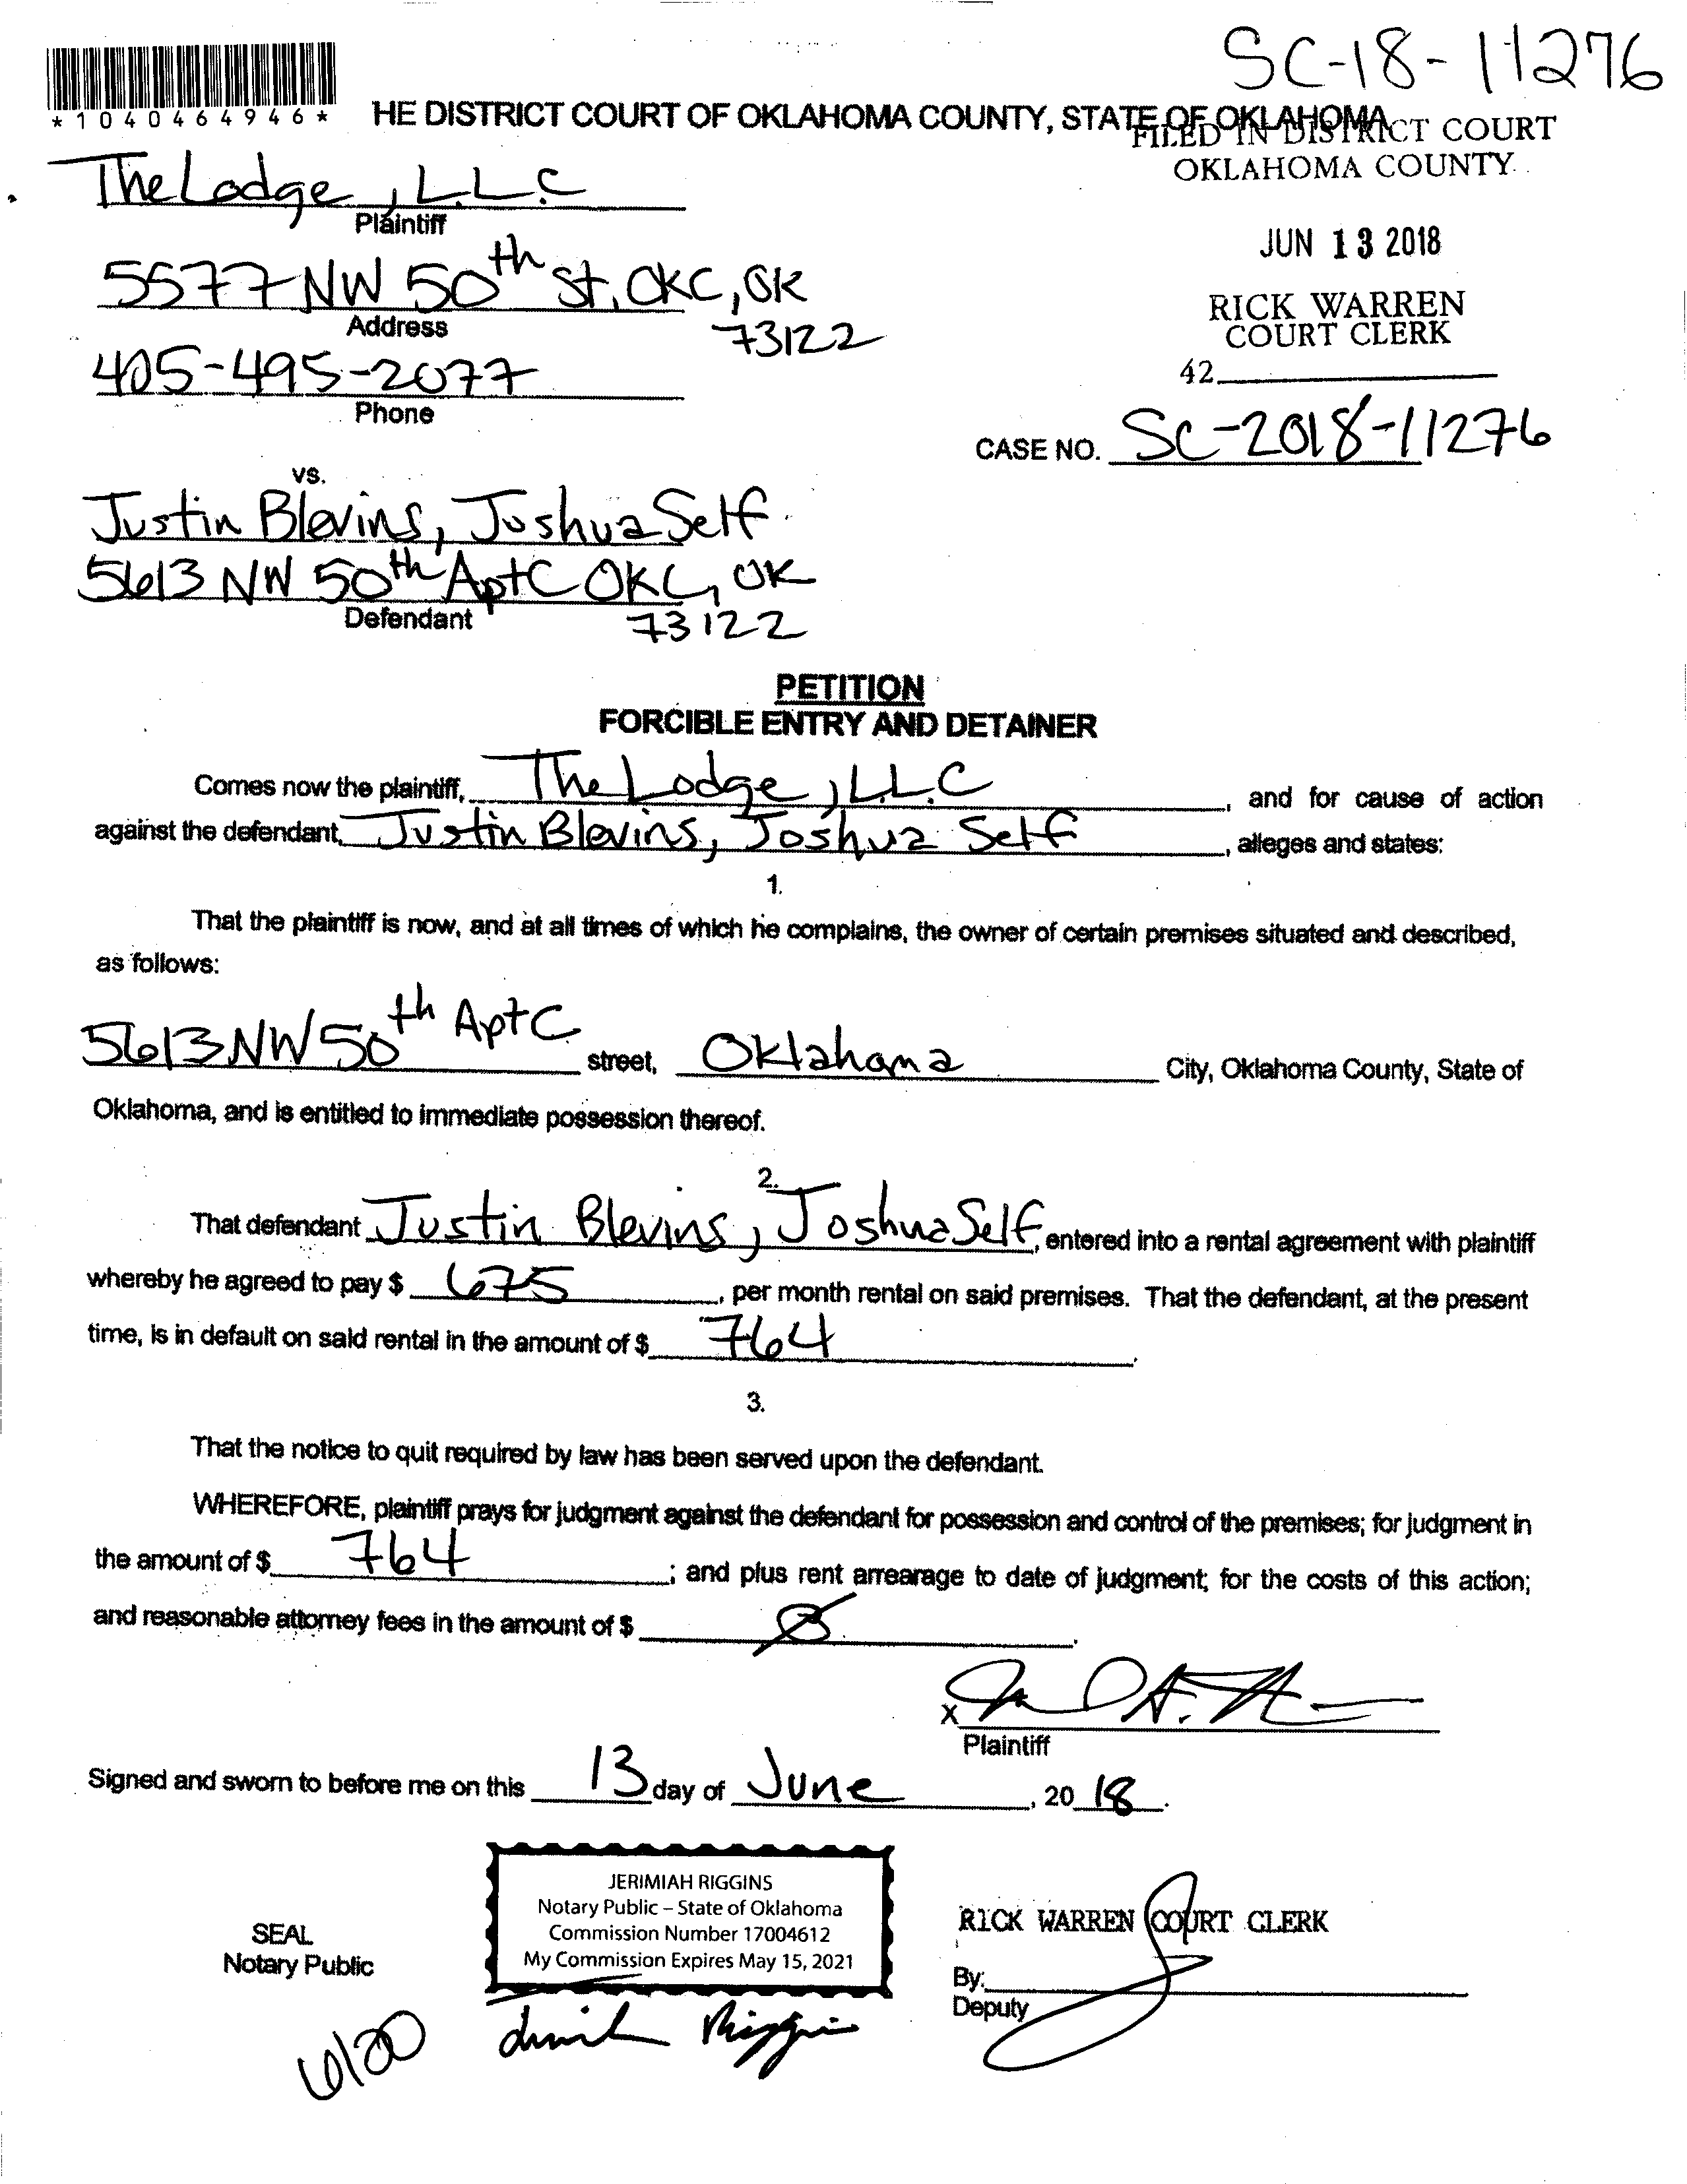 SC-18-11276
*1040464946*
HE DISTRICT COURT OF OKLAHOMA COUNTY, STATE OF OKLAHOMA
FILED IN DISTRICT COURT
OKLAHOMA COUNTY
The Lodge, L.L.C
Plaintiff
JUN 13 2018
5577 NW 50th St, OKC, OK
Address
73122
RICK WARREN
COURT CLERK
42
405-495-2077
Phone
CASE NO. SC-2018-11276
vs.
Justin Blevins, Joshua Self
5613 NW 50th Apt C OKC, OK
Defendant
73122
PETITION
FORCIBLE ENTRY AND DETAINER
Comes now the plaintiff, The Lodge, L.L.C, and for cause of action
against the defendant, Justin Blevins, Joshua Self, alleges and states:
1.
That the plaintiff is now, and at all times of which he complains, the owner of certain premises situated and described,
as follows:
5613 NW 50th Apt C street, Oklahoma City, Oklahoma County, State of
Oklahoma, and is entitled to immediate possession thereof.
2.
That defendant Justin Blevins, Joshua Self, entered into a rental agreement with plaintiff
whereby he agreed to pay $ 675, per month rental on said premises. That the defendant, at the present
time, is in default on said rental in the amount of $ 764.
3.
That the notice to quit required by law has been served upon the defendant.
WHEREFORE, plaintiff prays for judgment against the defendant for possession and control of the premises; for judgment in
the amount of $ 764; and plus rent arrearage to date of judgment; for the costs of this action;
and reasonable attorney fees in the amount of $ Ø.
X
Plaintiff
Signed and sworn to before me on this 13 day of June, 2018.
JERIMIAH RIGGINS
Notary Public – State of Oklahoma
Commission Number 17004612
My Commission Expires May 15, 2021
SEAL
Notary Public
RICK WARREN COURT CLERK
By:
Deputy
6/20
Riggins